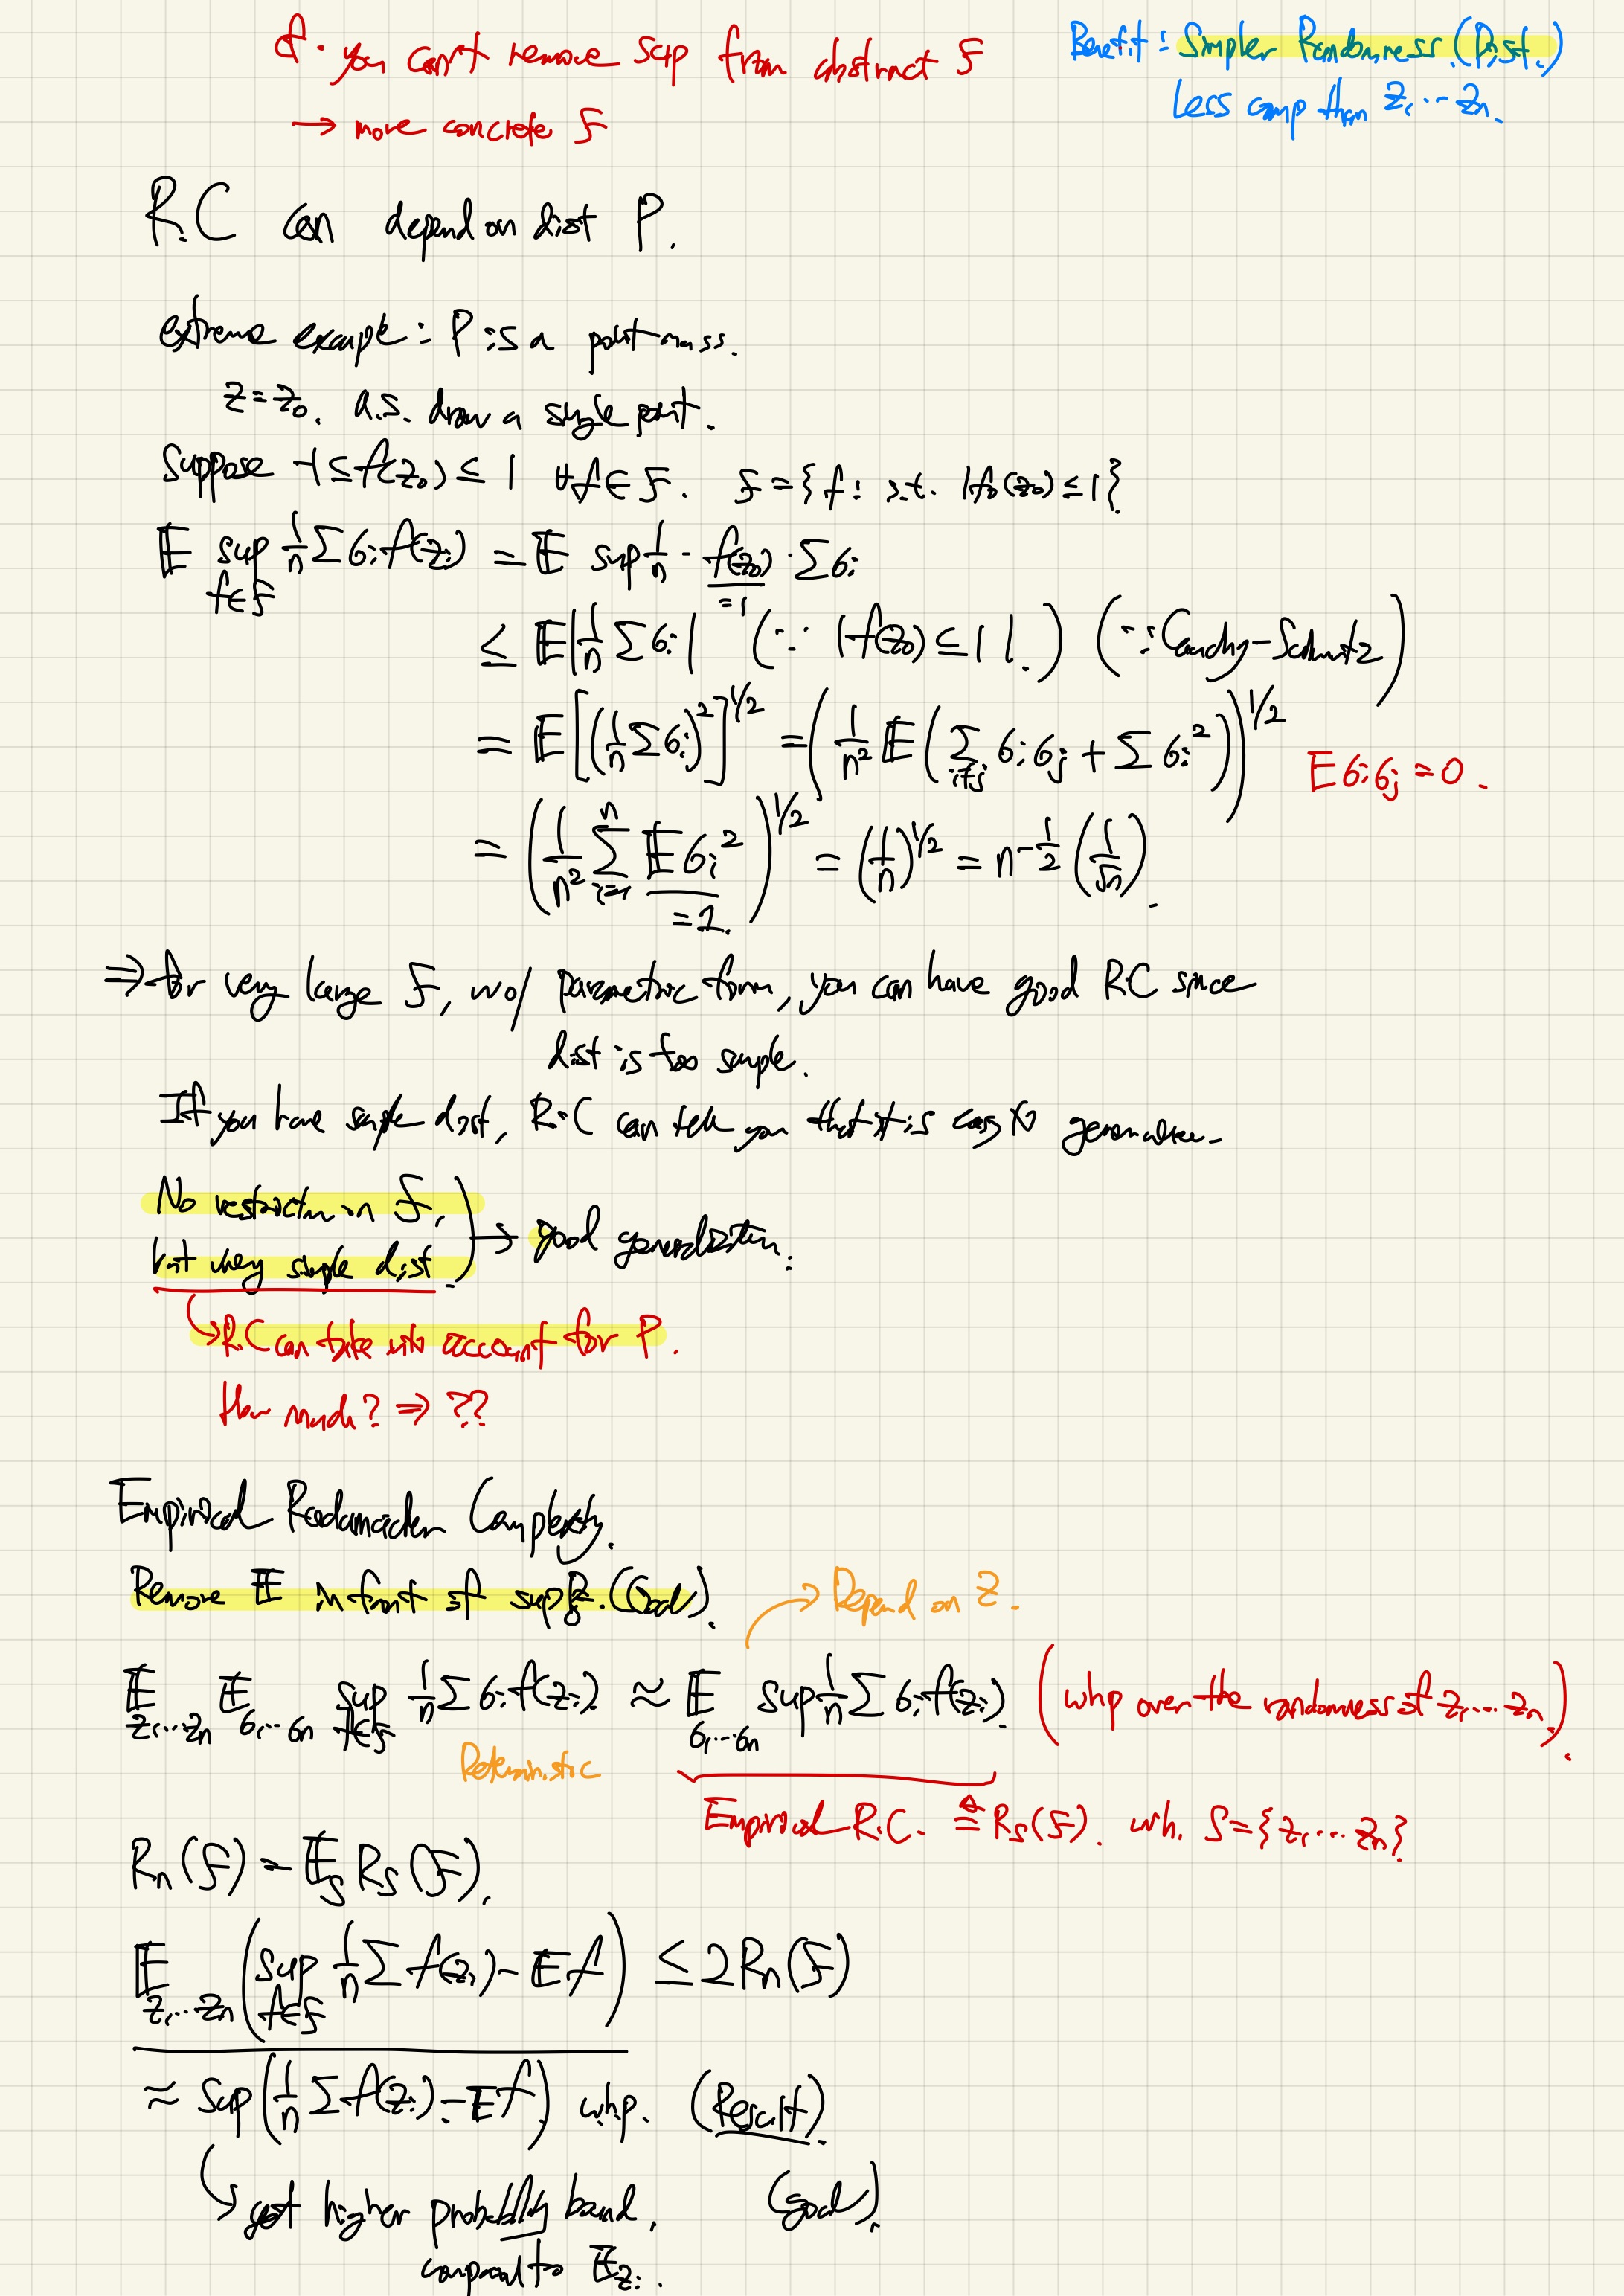 cf. you can't remove sup from abstract F
→ more concrete F
Benefit : Simpler Randomness. (Dist.)
Less comp than Z₁…Zₙ.
R.C can depend on dist P.
extreme example : P is a point mass.
z = z₀. a.s. draw a single point.
Suppose -1 ≤ f(z₀) ≤ 1 ∀f ∈ F. F = {f : s.t. |f(z₀) ≤ 1}
E sup_{f∈F} 1/n Σ σᵢ f(zᵢ) = E sup 1/n · f(z₀) · Σ σᵢ
= 1
≤ E|1/n Σ σᵢ| (∵ |f(z₀) ≤ 1|.) (∵ Cauchy-Schwartz)
= E[(1/n Σ σᵢ)²]^{1/2} = (1/n² E(Σ_{i≠j} σᵢσⱼ + Σ σᵢ²))^{1/2} E σᵢσⱼ = 0.
= (1/n² Σ_{i=1}^{n} E σᵢ²)^{1/2} = (1/n)^{1/2} = n^{-1/2} (1/√n).
= 1.
⇒ for very large F, w/o parametric form, you can have good RC since
dist is too simple.
If you have simple dist, R.C can tell you that it is easy to generalize.
No restriction on F,
but very simple dist.) → good generalization.
↳ R.C can take into account for P.
How much? ⇒ ??
Empirical Rademacher Complexity.
Remove E in front of sup (Goal).
→ Depend on Z.
E_{z₁…zₙ} E_{σ₁…σₙ} sup_{f∈F} 1/n Σ σᵢ f(zᵢ) ≈ E_{σ₁…σₙ} sup 1/n Σ σᵢ f(zᵢ) (whp over the randomness of z₁…zₙ).
Deterministic
Empirical R.C. ≜ R_S(F). wh. S = {z₁…zₙ}
Rₙ(F) = E_S R_S(F).
E_{z₁…zₙ} (sup_{f∈F} 1/n Σ f(zᵢ) - E f) ≤ 2Rₙ(F)
≈ sup(1/n Σ f(zᵢ) - E f) whp. (Result).
↳ get higher probability bound. (goal).
compared to E_{zᵢ}.